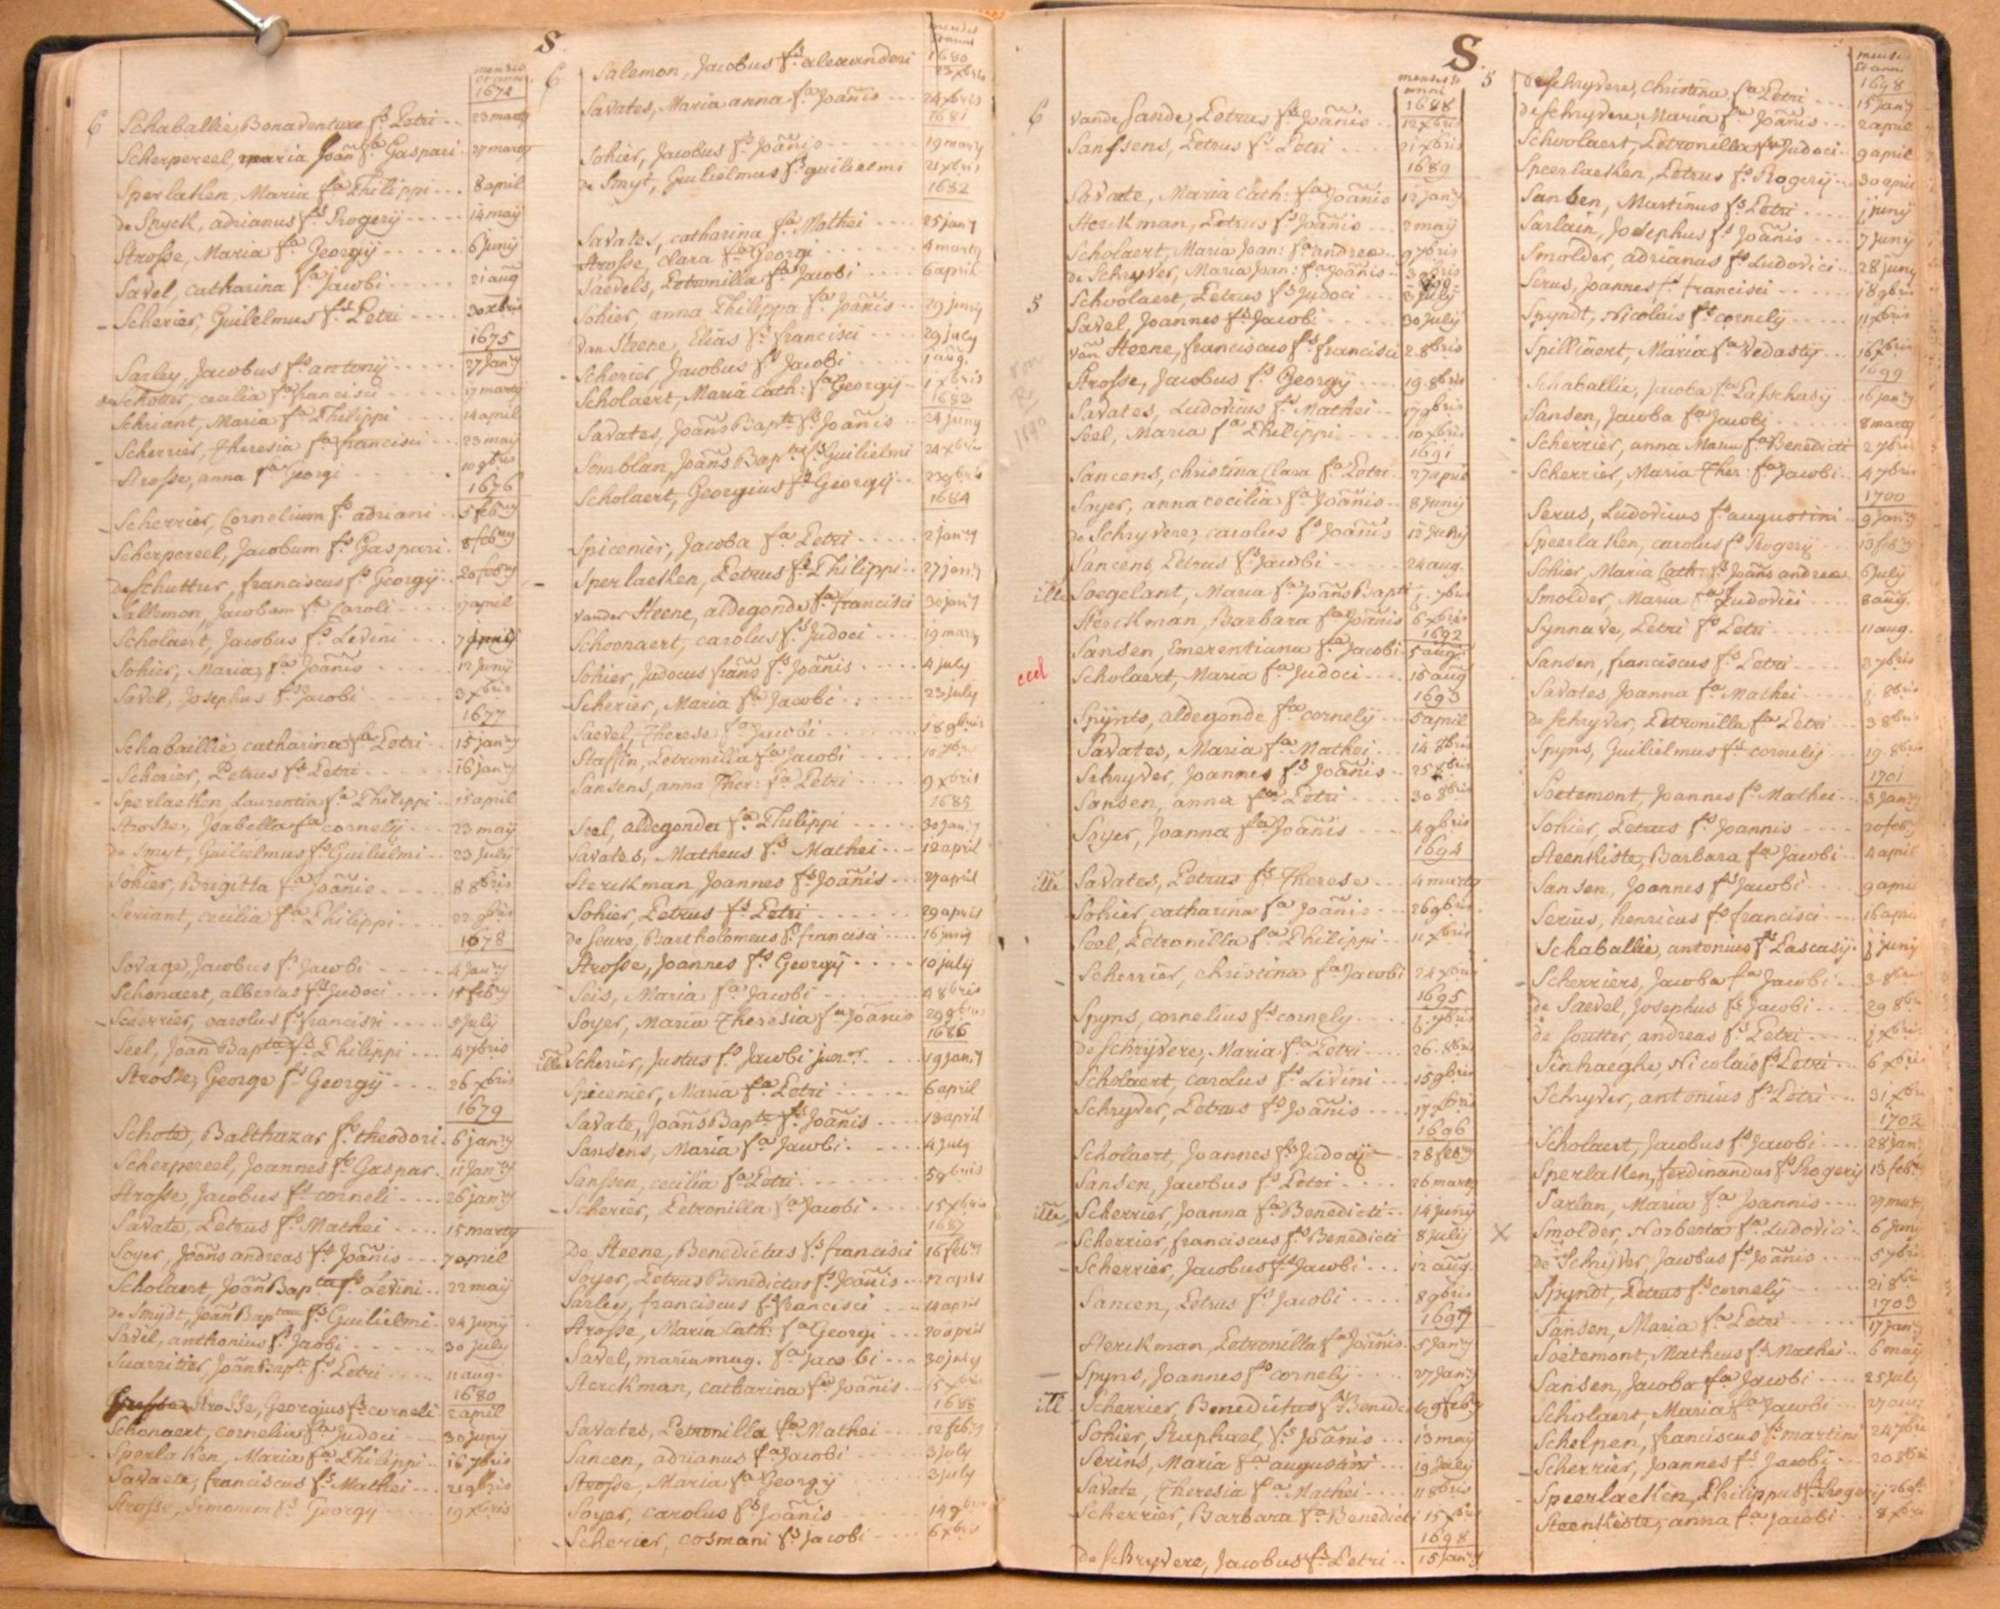 S.
mensis
et anni
1674
6 Schaballie, Bonaventure fs Petri 23 marty
Scherpereel, maria Joañ fa Gaspari 27 marty
Sperlaeken, Maria fa Philippi 8 april
de Snyck, adrianus fs Rogerij 14 meij
Strosse, Maria fa Georgij 6 Junij
Savel, catharina fa Jacobi 21 aug
Scherier, Guilelmus fs Petri 30 xbris
1675
Sarley, Jacobus fs antonij 27 Janry
de Schotter, cecilia fa francisci 17 marty
Schriant, Maria fa Philippi 14 april
Scherrier, Theresia fa francisci 23 maij
Strosse, anna fa Georgi 10 9bris
1676
Scherrier, Cornelium fs adriani 5 febry
Scherpereel, Jacobum fs Gaspari 8 febry
de Schuttur, franciscus fs Georgij 20 febry
Sallemon, Jacobum fs Caroli 17 april
Scholaert, Jacobus fs Livini 7
Sohier, Maria fa Joãnis 12 Junij
Savel, Josephus fs Jacobi 3 xbris
1677
Schabaillie catharina fa Petri 15 janry
Scherier, Petrus fs Petri 16 janry
Sperlaeken, Laurentia fa Philippi 15 april
Strosse, Isabella fa cornely 23 maij
de Smyt, Guilielmus fs Guilielmi 23 July
Sohier, Brigitta fa Joãnis 8 8bris
Seriant, cecilia fa Philippi 22 9bris
1678
Sovage, Jacobus fs Jacobi 4 Janry
Schonaert, albertus fs Judoci 15 febry
Scherrier, carolus fs francisci 5 July
Seel, Joañ Bapta fs Philippi 4 7bris
Strosse, George fs Georgij 26 xbris
1679
Schote, Balthazar fs theodori 6 janry
Scherpereel, Joannes fs Gaspar 11 Janry
Strosse, Jacobus fs corneli 26 janry
Savate, Petrus fs Mathei 15 marty
Soyer, Joãns andreas fs Joãnis 7 april
Scholaert, Joãn Bapta fs Livini 22 maij
de Smijdt, Joãn Baptau fs Guilielmi 24 junij
Savel, anthonius fs Jacobi 30 july
Suarritier, Joãn Bapta fs Petri 11 aug.
1680
Strosse, Georgius fs corneli 2 april
Schonaert, cornelius fs Judoci 30 juny
Sperlaken, Maria fa Philippi 16 7bris
Savaete, franciscus fs Mathei 21 9bris
Strosse, Simonem fs Georgy 19 xbris
mensis
et anni
1680
6 Salemon, Jacobus fs alexandri 23 xbris
Savates, Maria anna fa Joãnis 24 xbris
1681
Sohier, Jacobus fs Joãnis 19 marty
de Smyt, Guilielmus fs guilielmi 21 xbris
1682
Savates, catharina fa Mathei 25 janry
Strosse, Clara fa Georgi 4 marty
Saevels, Petronilla fa Jacobi 6 april
Sohier, anna Philippa fa Joãnis 29 junij
Van Steene, Elias fs francisci 29 july
Scherier, Jacobus fs Jacobi 1 aug.
Scholaert, Maria Cath: fa Georgij 1 xbris
1683
Savates, Joãns Bapta fs Joãnis 24 juny
Somblan, Joãns Bapta fs Guilielmi 24 xbris
Scholaert, Georgius fs Georgij
1684
Spicenier, Jacoba fa Petri 2 janry
Sperlaeken, Petrus fs Philippi 27 janry
vander Steene, aldegonde fa francisci 30 janry
Schoonaert, carolus fs Judoci 19 marty
Sohier, Judocus frans fs Joãnis 4 july
Scherier, Maria fa Jacobi 23 july
Saevel, Therese fa Jacobi 18 9bris
Staffin, Petronilla fa Jacobi
Sansens, anna Ther: fa Petri 9 xbris
1685
Seel, aldegonda fa Philippi 30 jan.ry
Savates, Matheus fs Mathei 12 april
Sterckman Joannes fs Joãnis 27 april
Sohier, Petrus fs Petri 29 april
de Seure, Bartholomeus fs francisci 16 junij
Strosse, Joannes fs Georgij 10 july
Seis, Maria fa Jacobi 4 8bris
Soyer, Maria Theresia fa Joãnis 29 9bris
1686
ille Scherier, Justus fs Jacobi junor. 19 janry
Spicenier, Maria fa Petri 6 april
Savate, Joãns Bapta fs Joãnis 18 april
Sansens, Maria fa Jacobi 4 july
Sanssen, cecilia fa Petri
Scherier, Petronilla fa Jacobi 15 xbris
1687
De Steene, Benedictus fs francisci 16 febry
Soyer, Petrus Benedictus fs Joãnis 12 april
Sarley, franciscus fs francisci 14 april
Strosse, Maria Cath: fa Georgi 20 april
Savel, maria mag. fa Jacobi 30 july
Sterckman, catharina fa Joãnis 15 xbris
1688
Savates, Petronilla fa Mathei 12 febry
Sancen, adrianus fs Jacobi 3 july
Strosse, Maria fa Georgy 3 july
Soyer, carolus fs Joãnis
Scherier, cosmani fs Jacobi 6 xbris
S.
mensis et
anni
1688
6 vande Sande, Petrus fs Joãnis 12 xbris
Sanssens, Petrus fs Petri 21 xbris
1689
Savate, Maria Cath: fa Joãnis 12 janry
Sterckman, Petrus fs Joãnis 2 maij
Scholaert, Maria Joan: fa andreae 9 7bris
de Schryver, Maria Joan: fa Joãnis
5 Schoolaert, Petrus fs Judoci 3 july
Savel, Joannes fs Jacobi 30 July
van Steene, franciscus fs francisci 2 8bris
Strosse, Jacobus fs Georgij 19 8bris
Savates, Ludovicus fs Mathei 17 9bris
Seel, Maria fa Philippi 10 xbris
1690
1691
Sancens, christina Clara fa Petri 27 april
Soyer, anna cecilia fa Joãnis 8 Junij
de Schryvere, carolus fs Joãnis 12 Juny
Sancens, Petrus fs Jacobi 24 aug.
ille Soegelant, Maria fa Joãns Bapti
Sterckman, Barbara fa Joãnis 6 xbris
1692
Sansen, Emerentiana fa Jacobi 5
ccl Scholaert, Maria fa Judoci 16 aug
1693
Spijnts, aldegonde fa cornelij 5 april
Savates, Maria fa Mathei 14 8bris
Schryver, Joannes fs Joãnis
Sansen, anna fa Petri 30 8bris
Soyer, Joanna fa Joãnis 4 9bris
1694
ille Savates, Petrus fs Therese 4 marty
Sohier, catharina fa Joãnis 26 9bris
Seel, Petronilla fa Philippi 11 xbris
Scherrier, christina fa Jacobi 24 xbris
1695
Spyns, cornelius fs cornely
de Schrijvere, Maria fa Petri 26 8bris
Scholaert, carolus fs Livini 15 9bris
Schryver, Petrus fs Joãnis 17 xbris
1696
Scholaert, Joannes fs Judocij 28 febry
Sansen, Jacobus fs Petri 26 marty
ille Scherrier, Joanna fa Benedicti 14 junij
Scherrier franciscus fs Benedicti 8 july
Scherrier, Jacobus fs Jacobi 12 aug.
Sancen, Petrus fs Jacobi 8 9bris
1697
Sterckman, Petronilla fa Joãnis 5 Janry
Spyns, Joannes fs cornely 27 Janry
ill Scherrier, Benedictus fs Benedict
Sohier, Raphael, fs Joãnis 13 maij
Serins, Maria fa augustini 19 July
Savate, Theresia fa Mathei 11 8bris
Scherrier, Barbara fa Benedicti 15 xbris
1698
de Schryvere, Jacobus fs Petri 15 janry
mensis
et anni
1698
5 de Schryvere, christina fa Petri 15 janry
de Schryvere, Maria fa Joãnis 2 april
Schoolaert, Petronilla fa Judoci 9 april
Speerlaeken, Petrus fs Rogerij 30 april
Sansen, Martinus fs Petri j junij
Sarlain, Josephus fs Joãnis 7 Junij
Smolder, adrianus fs Ludovici 28 junij
Serus, Joannes fs francisci 18 9bris
Spyndt, Nicolais fs cornelij 11 xbris
Spilliaert, Maria fa Vedastij 16 xbris
1699
Schaballie, Jacoba fa Passchasij 16 janry
Sansen, Jacoba fa Jacobi 8 marty
Scherrier, anna Maria fa Benedicti 2 7bris
Scherrier, Maria Ther: fa Jacobi 4 7bris
1700
Serus, Ludovicus fs augustini 9 janry
Speerlaken, carolus fs Rogerij 13 febry
Sohier, Maria Cath: fs Joãns andreae 6 july
Smolder, Maria fa Ludovici 8 aug.
Synnave, Petri fs Petri 11 aug.
Sansen, franciscus fs Petri
Savates, Joanna fa Mathei j. 8bris
de Schryver, Petronilla fa Petri 3 8bris
Spyns, Guilielmus fs cornelij 19 8bris
1701
Soetemont, Joannes fs Mathei 3 janry
Sohier, Petrus fs Joannis 20 feb
Steenkiste, Barbara fa Jacobi 4 april
Sansen, Joannes fs Jacobi 9 april
Serius, henricus fs francisci 16 april
Schaballie, antonius fs Pascasij j junij
Scherriers, Jacoba fa Jacobi 3 8bris
de Saevel, Josephus fs Jacobi 29 8bris
de Soutter, andreas fs Petri j xbris
Sinhaeghe, Nicolais fs Petri 6 xbris
Schryver, antonius fs Petri 31 xbris
1702
Scholaert, Jacobus fs Jacobi 28 jan
Sperlaken, ferdinandus fs Rogerij 13 feb
Sarlan, Maria fa Joannis 27 mart
X Smolder, Norberta fa Ludovici 6 juny
de Schrijver, Jacobus fs Joãnis 5 7bris
Spyndt, Petrus fs cornelij 21 8bris
1703
Sansen, Maria fa Petri 17 jany
Soetemont, Matheus fs Mathei 6 maij
Sansen, Jacoba fa Jacobi 25 july
Scholaert, Maria fa Jacobi 27 aug
Schelpen, franciscus fs martini 24 7bris
Scherrier, Joannes fs Jacobi 20 8bris
Speerlaeken, Philippus fs Rogerij
Steenkiste, anna fa Jacobi 8 xbris